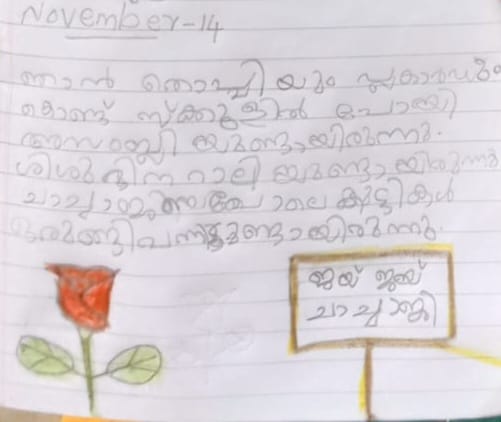 November-14
ഞാൻ തൊപ്പിയും പ്ലകാർഡും
കൊണ്ട് സ്ക്കൂളിൽ പോയി
അസംബ്ലി യുണ്ടായിരുന്നു.
ശിശുദിന റാലി യുണ്ടായിരുന്നു
കുട്ടികൾ
ഒരുങ്ങി വന്നിട്ടുണ്ടായിരുന്നു.
ജയ് ജയ്
ചാച്ചാജി